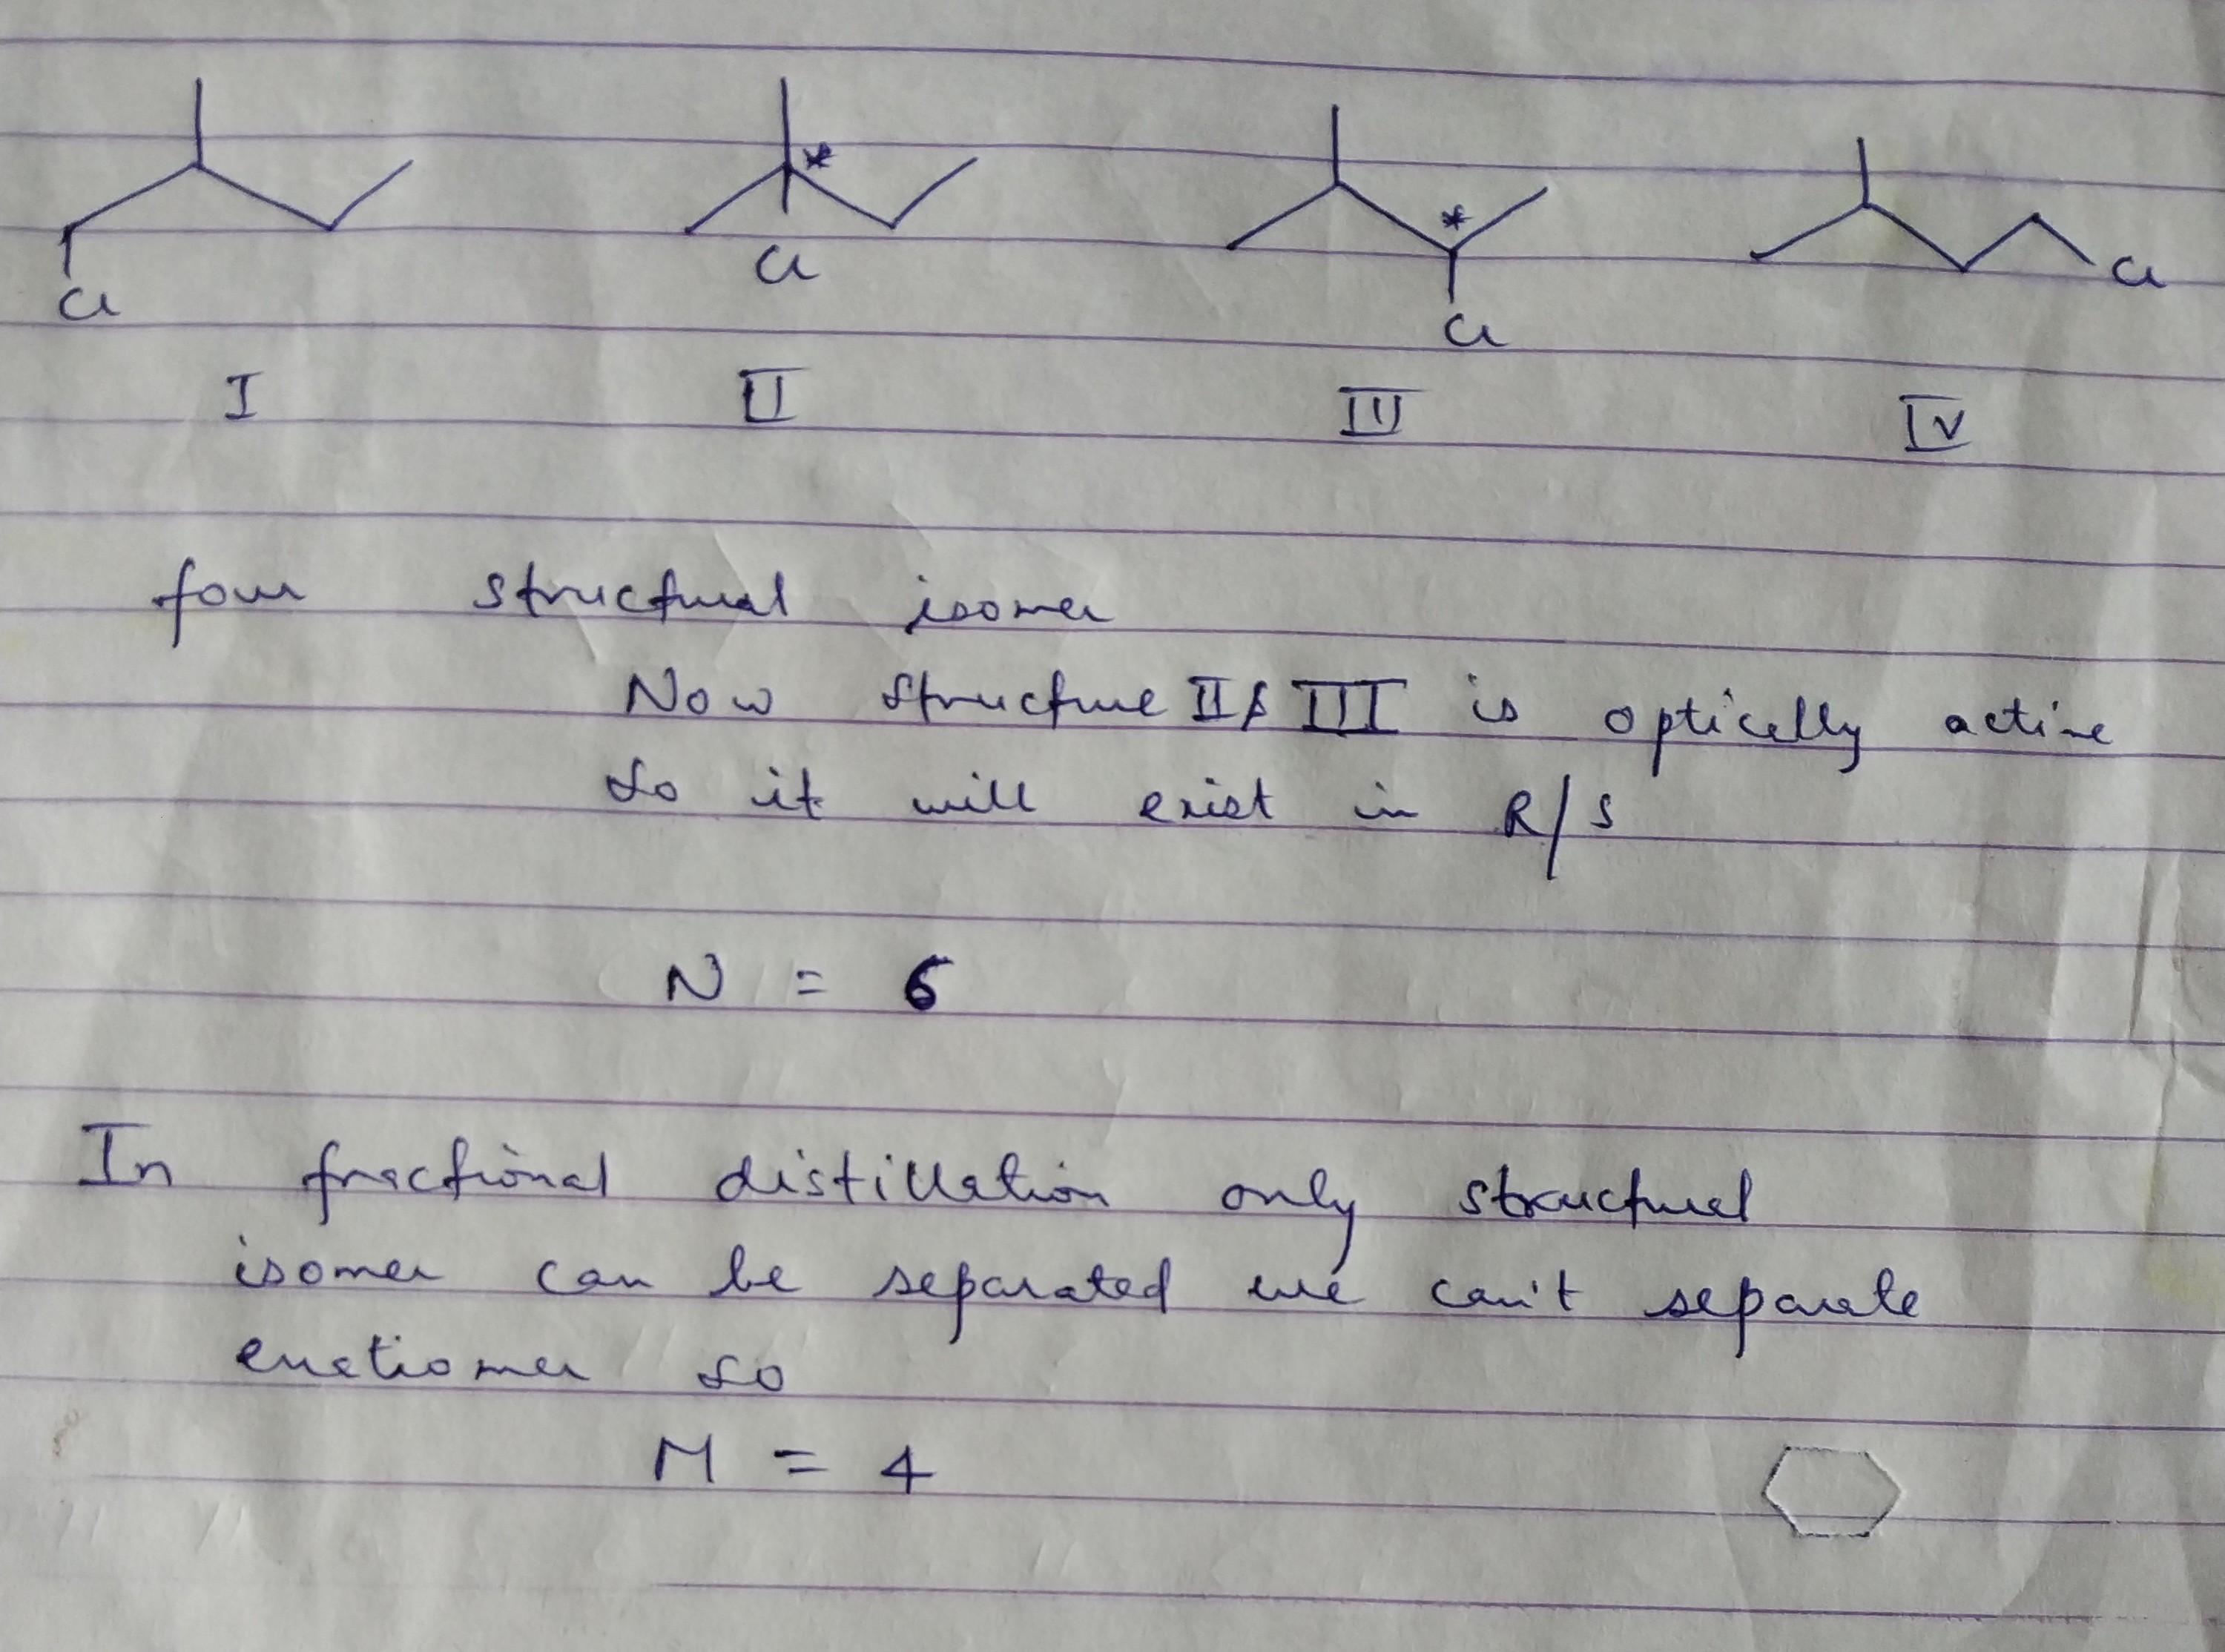 *
*
Cl
Cl
Cl
Cl
I
II
III
IV
four structural isomer
Now structure II & III is optically active
So it will exist in R/S
N = 6
In fractional distillation only structural
isomer can be separated we can't separate
enatiomer so
M = 4